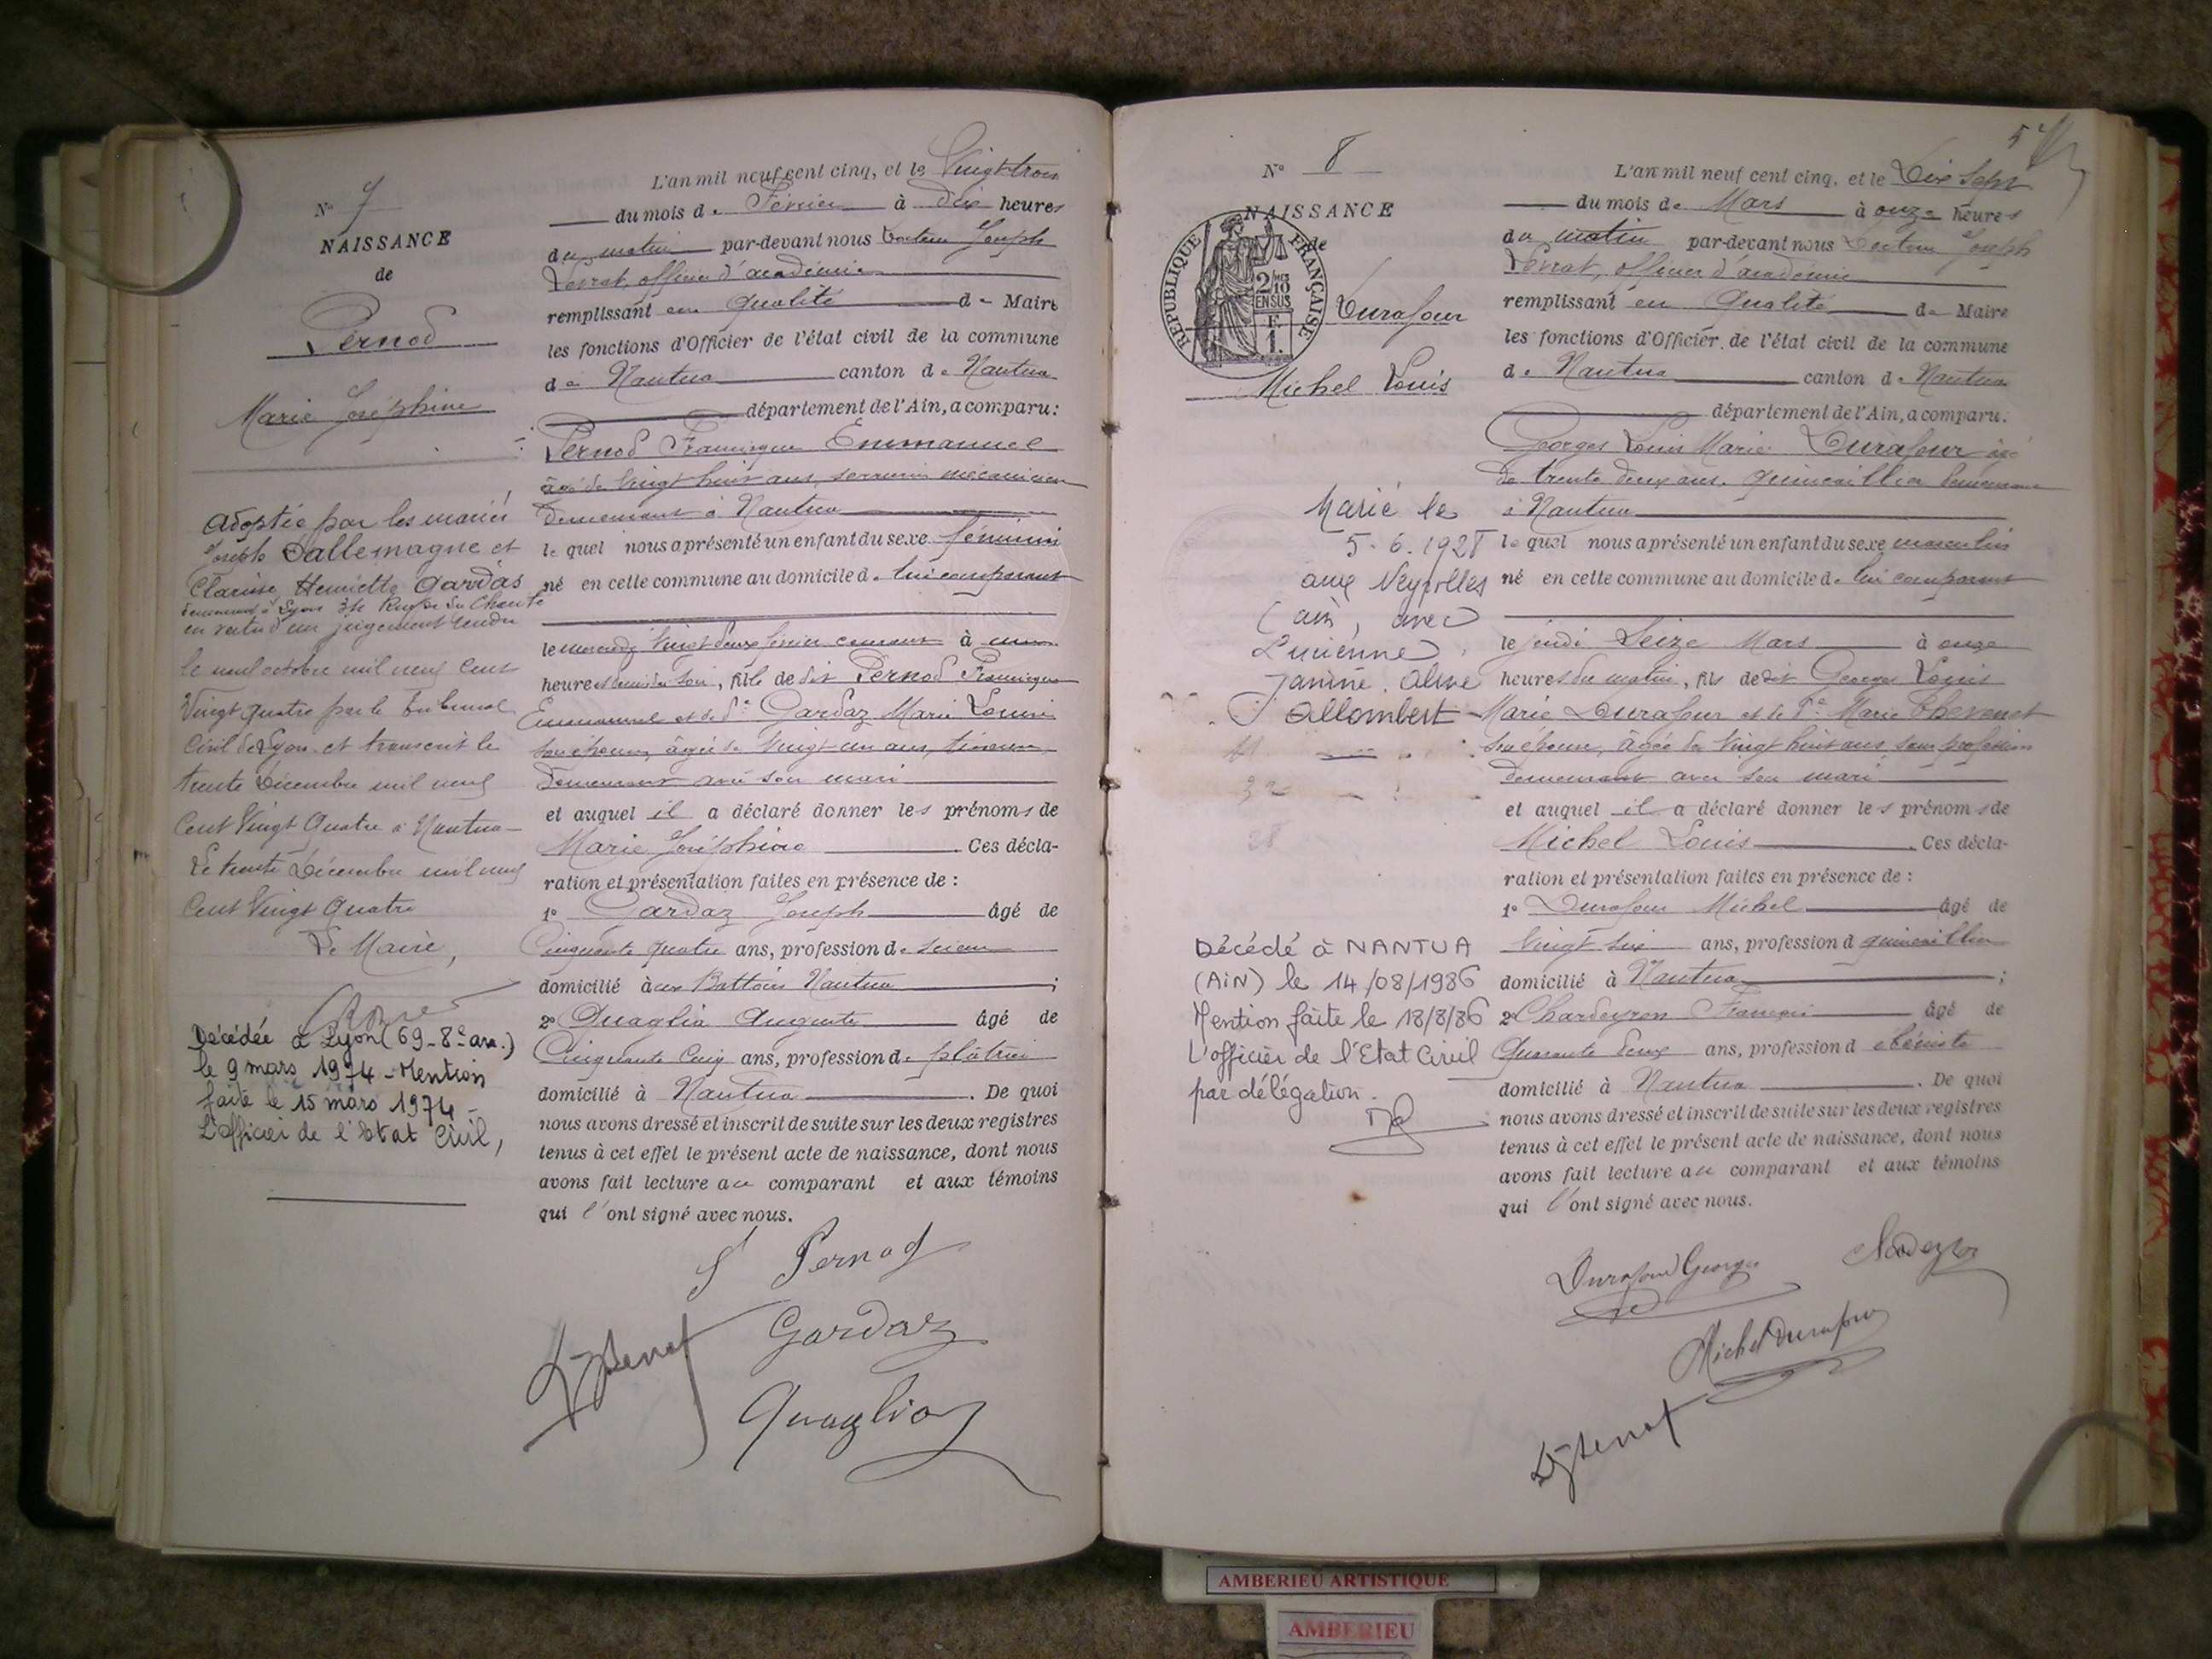 N° 7
NAISSANCE
de
Pernod
Marie Joséphine
Adoptée par les mariés
Joseph Dallemagne et
Clarisse Henriette Gardas
demeurant à Lyon
en vertu d'un jugement rendu
le neuf octobre mil neuf cent
Vingt quatre par le tribunal
Civil de Lyon et transcrit le
trente Décembre mil neuf
Cent Vingt Quatre à Nantua
Le trente Décembre mil neuf
Cent Vingt Quatre
Le Maire,
Décédée à Lyon (69-8e arr.)
le 9 mars 1974 - Mention
faite le 15 mars 1974 -
L'officier de l'Etat Civil,
L'an mil neuf cent cinq, et le Vingt trois
du mois de Février à dix heures
du matin par-devant nous Docteur Joseph
officier d'académie
remplissant en qualité de Maire
les fonctions d'Officier de l'état civil de la commune
de Nantua canton de Nantua
département de l'Ain, a comparu:
Pernod Francisque Emmanuel
âgé de Vingt huit ans, serrurier mécanicien
demeurant à Nantua
lequel nous a présenté un enfant du sexe féminin
né en cette commune au domicile de lui comparant
le mercredi Vingt deux février courant à
heures du soir, fille de dit Pernod Francisque
Emmanuel et de De Gardaz Marie Louise
son épouse, âgée de Vingt un ans,
demeurant avec son mari
et auquel il a déclaré donner les prénoms de
Marie Joséphine. Ces décla-
ration et présentation faites en présence de :
1° Gardaz Joseph âgé de
Cinquante quatre ans, profession de scieur
domicilié aux Battoirs Nantua ;
2° Quaglia Auguste âgé de
Cinquante Cinq ans, profession de plâtrier
domicilié à Nantua. De quoi
nous avons dressé et inscrit de suite sur les deux registres
tenus à cet effet le présent acte de naissance, dont nous
avons fait lecture au comparant et aux témoins
qui l'ont signé avec nous.
Pernod
Gardaz
Quaglia
N° 8
NAISSANCE
de
REPUBLIQUE FRANÇAISE
2/10 EN SUS
F. 1.
Durafour
Michel Louis
Marié le
5.6.1928
aux Neyrolles
(ain) avec
Lucienne
Janine Aline
Allombert
Décédé à NANTUA
(AIN) le 14/08/1986
Mention faite le 18/8/86
L'officier de l'Etat Civil
par délégation.
L'an mil neuf cent cinq, et le Dix sept
du mois de Mars à onze heures
du matin par-devant nous Docteur Joseph
officier d'académie
remplissant en Qualité de Maire
les fonctions d'Officier de l'état civil de la commune
de Nantua canton de Nantua
département de l'Ain, a comparu.
Georges Louis Marie Durafour âgé
de trente deux ans, quincaillier demeurant
à Nantua
lequel nous a présenté un enfant du sexe masculin
né en cette commune au domicile de lui comparant
le jeudi Seize Mars à onze
heures du matin, fils de dit Georges Louis
Marie Durafour et de De Marie Thevenet
son épouse, âgée de Vingt huit ans, sans profession
demeurant avec son mari
et auquel il a déclaré donner les prénoms de
Michel Louis. Ces décla-
ration et présentation faites en présence de :
1° Durafour Michel âgé de
Vingt six ans, profession d quincaillier
domicilié à Nantua ;
2° Chardeyron François âgé de
Quarante deux ans, profession d ébéniste
domicilié à Nantua. De quoi
nous avons dressé et inscrit de suite sur les deux registres
tenus à cet effet le présent acte de naissance, dont nous
avons fait lecture au comparant et aux témoins
qui l'ont signé avec nous.
Durafour Georges
Michel Durafour
AMBERIEU ARTISTIQUE
AMBERIEU